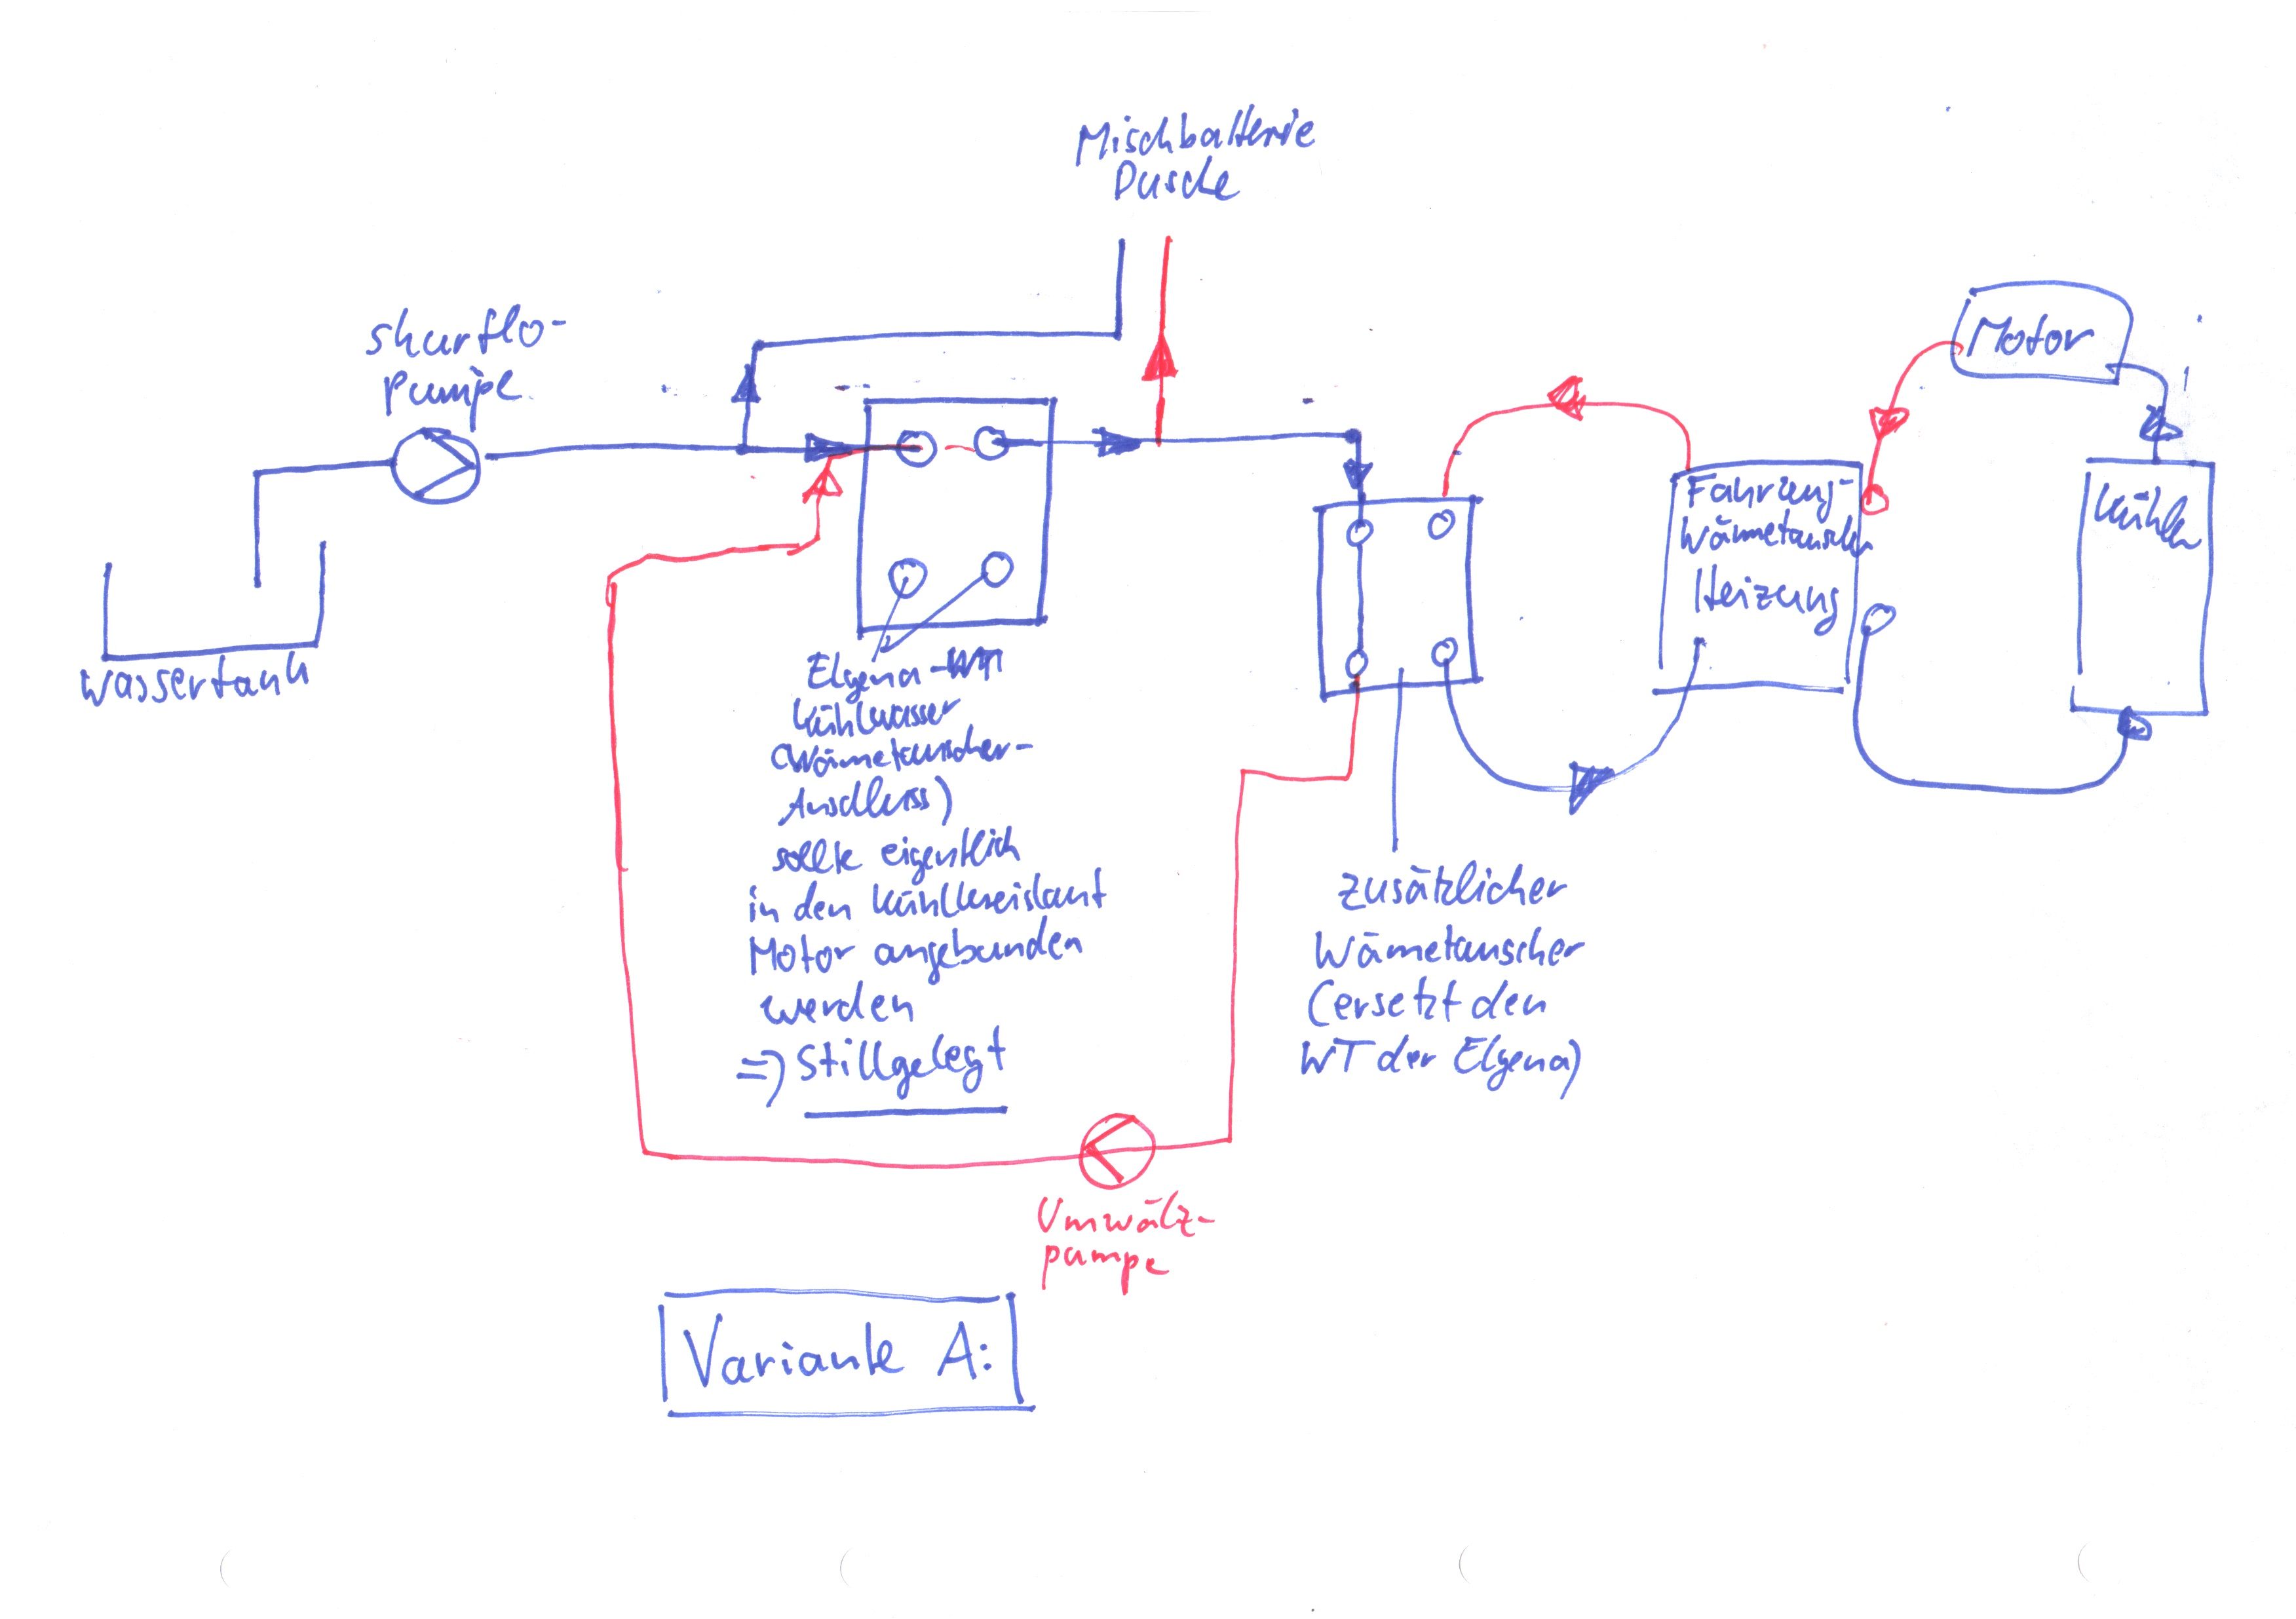 Mischbatterie
Dusche
shurflo-
Pumpe
Wassertank
Elgena-WT
Kühlwasser
(Wärmetauscher-
Anschluss)
sollte eigentlich
in den Kühlkreislauf
Motor angebunden
werden
=> stillgelegt
Umwälz-
pumpe
Variante A:
zusätzlicher
Wärmetauscher
(ersetzt den
WT der Elgena)
Wärmetauscher
Heizung
Motor
Kühler